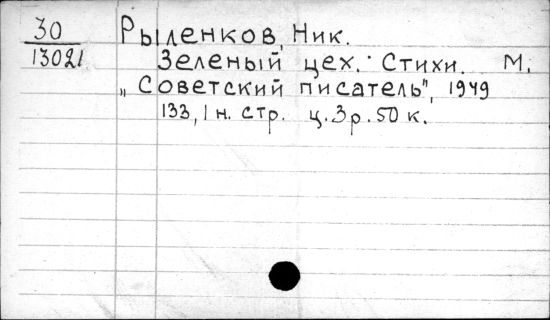 30
13021
Рыленков, Ник.
Зеленый цех. Стихи. М.
„Советский писатель", 1949
133, 1 н. стр. ц. 3 р. 50 к.